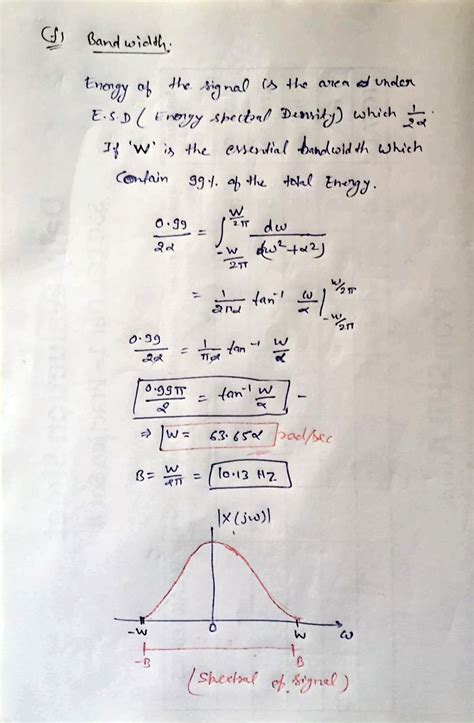 (f) Bandwidth:
Energy of the signal is the area under
E.S.D (Energy spectral Density) which 1/2α.
If 'W' is the essential bandwidth which
Contain 99%. of the total Energy.
0.99/2α = ∫_{-W/2π}^{W/2π} dω/(ω²+α²)
= 1/2πα tan⁻¹ ω/α |_{-W/2π}^{W/2π}
0.99/2α = 1/πα tan⁻¹ W/α
0.99π/2 = tan⁻¹ W/α
⇒ W = 63.65α rad/sec
B = W/2π = 10.13 Hz
|X(jω)|
-W 0 W ω
-B B
(Spectral of signal)